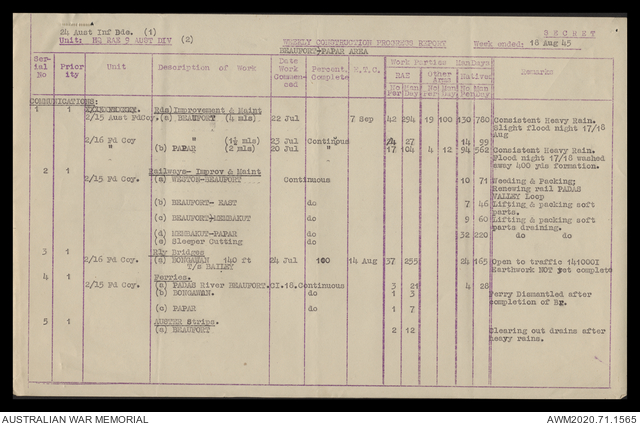 24 Aust Inf Bde. (1)
SECRET
Unit: HQ RAE 9 AUST DIV (2)
WEEKLY CONSTRUCTION PROGRESS REPORT
Week ended: 18 Aug 45
BEAUFORT-PAPAR AREA
Serial No Priority Unit Description of Work Date Work Commenced Percent. Complete E.T.C. Work Parties ManDays Remarks
RAE Other Arms Natives
No Per Man Day No Per Man Day No Per Man Day
COMMUNICATIONS:
1 1 Rds) Improvement & Maint
2/15 Aust Fd Coy. (a) BEAUFORT (4 mls) 22 Jul 7 Sep 42 294 19 100 130 780 Consistent Heavy Rain.
Slight flood night 17/18
Aug
2/16 Fd Coy " (1½ mls) 23 Jul Continous 27 14 99
" (b) PAPAR (2 mls) 20 Jul " 17 104 4 12 94 562 Consistent Heavy Rain.
Flood night 17/18 washed
away 400 yds formation.
2 1 Railways- Improv & Maint
2/15 Fd Coy. (a) WESTON-BEAUFORT Continuous 10 71 Weeding & Packing:
Renewing rail PADAS
VALLEY Loop
(b) BEAUFORT- EAST do 7 46 Lifting & packing soft
parts.
(c) BEAUFORT-MEMBAKUT do 9 60 Lifting & packing soft
parts draining.
(d) MEMBAKUT-PAPAR do 32 220 do do
(e) Sleeper Cutting do
3 1 Rly Bridges
2/16 Fd Coy. (a) BONGAWAN 140 ft 24 Jul 100 14 Aug 37 255 24 165 Open to traffic 141000I
T/S BAILEY Earthwork NOT yet complete
4 1 Ferries.
2/15 Fd Coy. (a) PADAS River BEAUFORT.CI.18. Continuous 3 21 4 28
(b) BONGAWAN. do 1 3 Ferry Dismantled after
completion of Br.
(c) PAPAR do 1 7
5 1 AUSTER Strips.
(a) BEAUFORT 2 12 Clearing out drains after
heavy rains.
AUSTRALIAN WAR MEMORIAL
AWM2020.71.1565